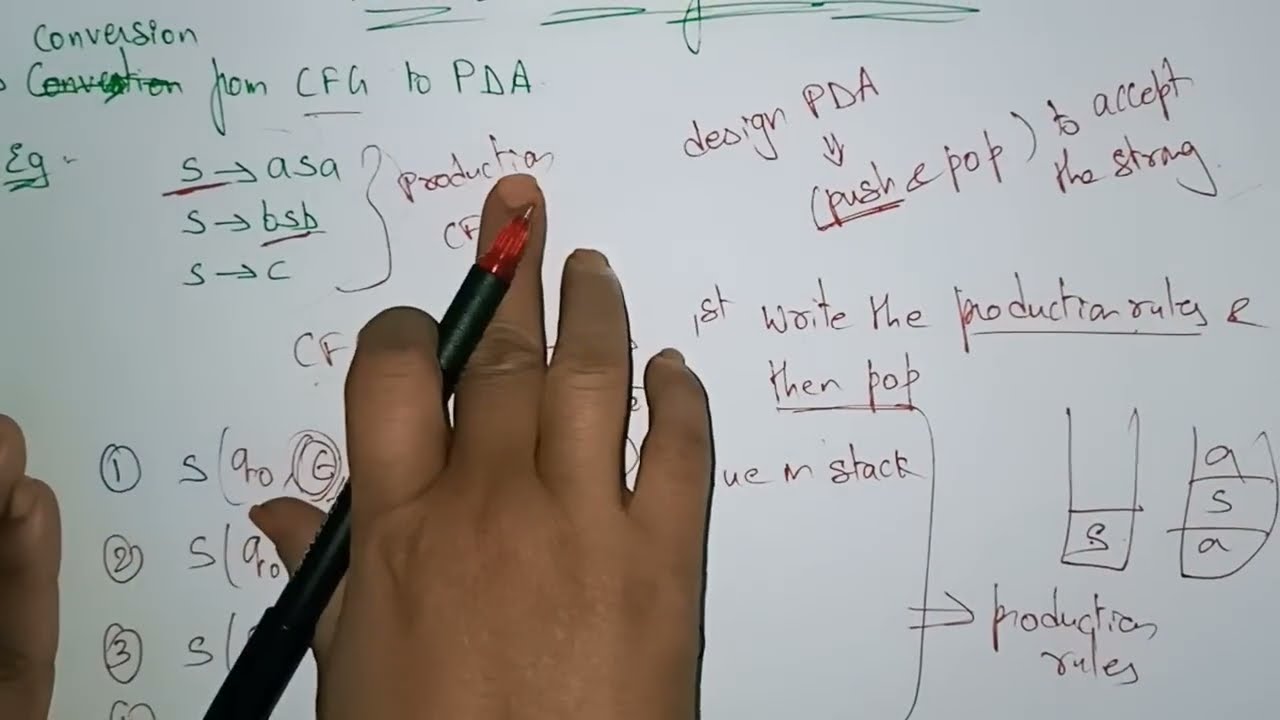 Conversion
from CFG to PDA
Eg -
S → asa
S → bsb
S → c
production
CF
design PDA
(push & pop) to accept
the string.
1st write the production rules &
then pop
CF
① S(q0, E
ue in stack
② S(q0
③ S(
S
a
S
a
⇒ production
rules